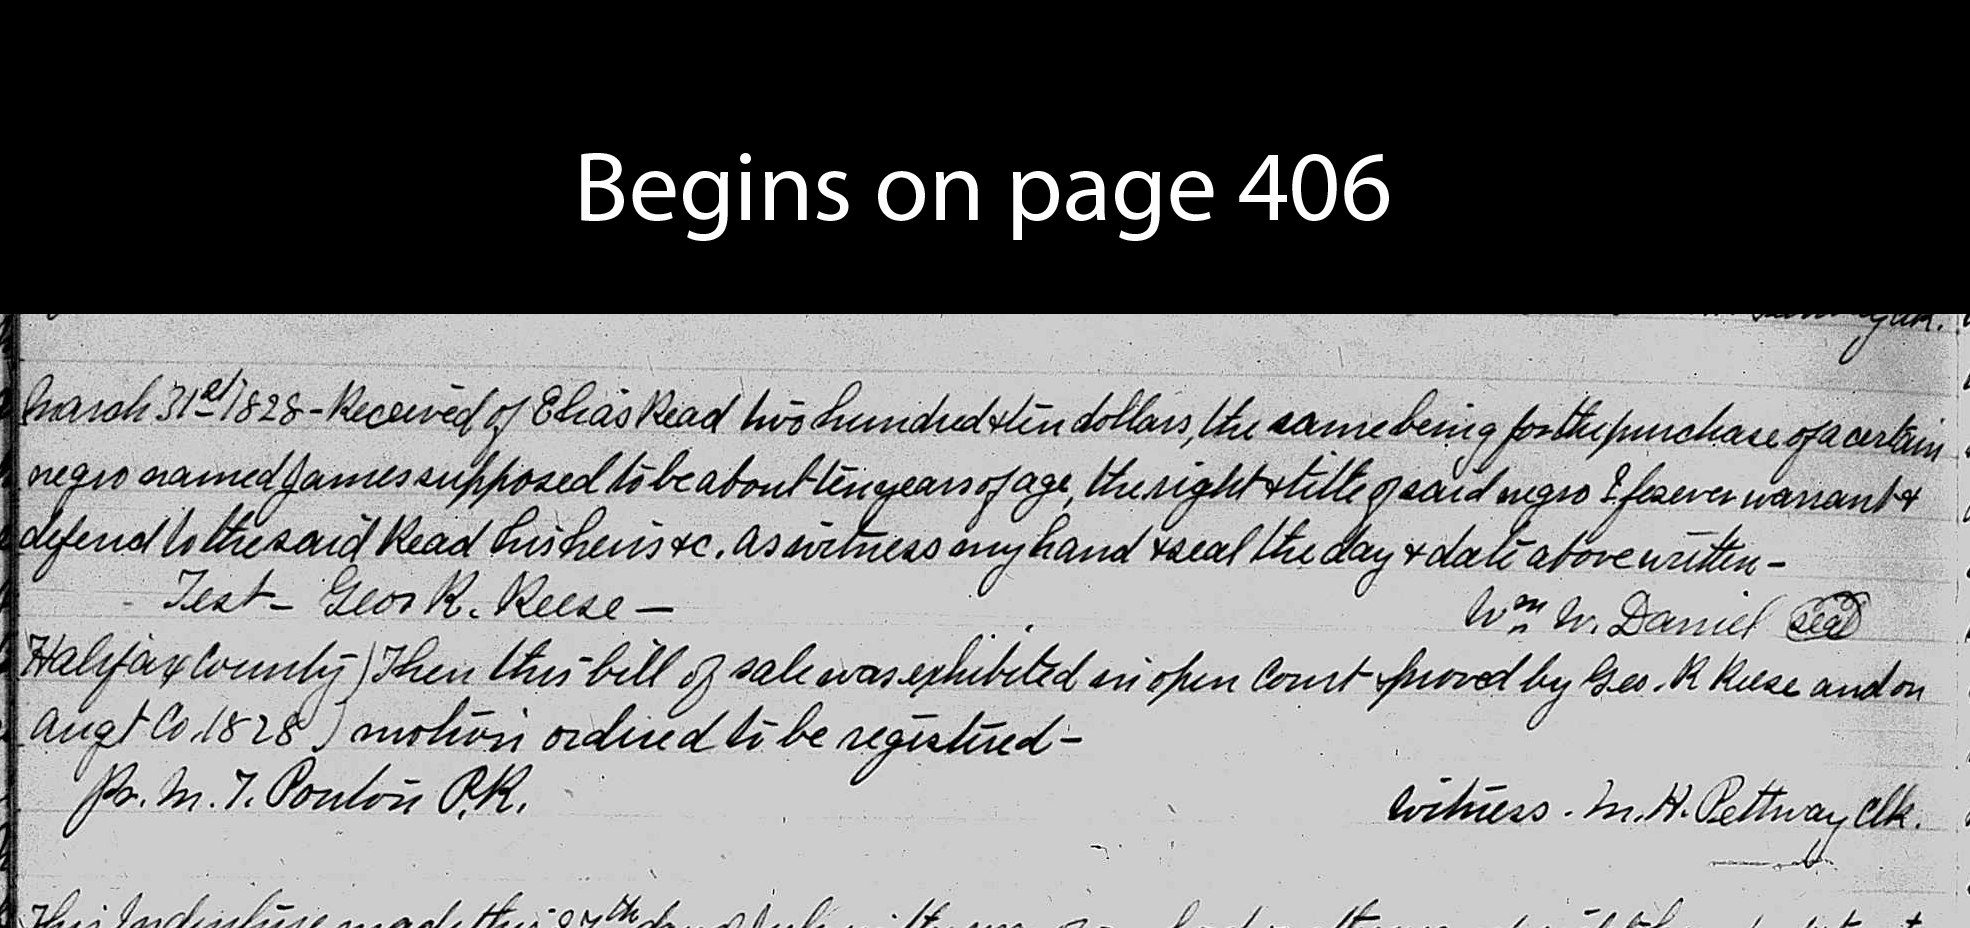 Begins on page 406
March 31st 1828 - Received of Elias Read two hundred & ten dollars, the same being for the purchase of a certain
negro named James supposed to be about ten years of age, the right & title of said negro I forever warrant &
defend to the said Read his heirs &c. As witness my hand & seal the day & date above written -
Test - Geo R. Reese - Wm W. Daniel Seal
Halifax County) Then this bill of sale was exhibited in open Court & proved by Geo. R Reese and on
Augt Co. 1828 ) motion ordired to be registered -
Pr. M. T. Ponton P.R. Witness. M. H. Pettway Clk.
This Indenture made this 27th day of July